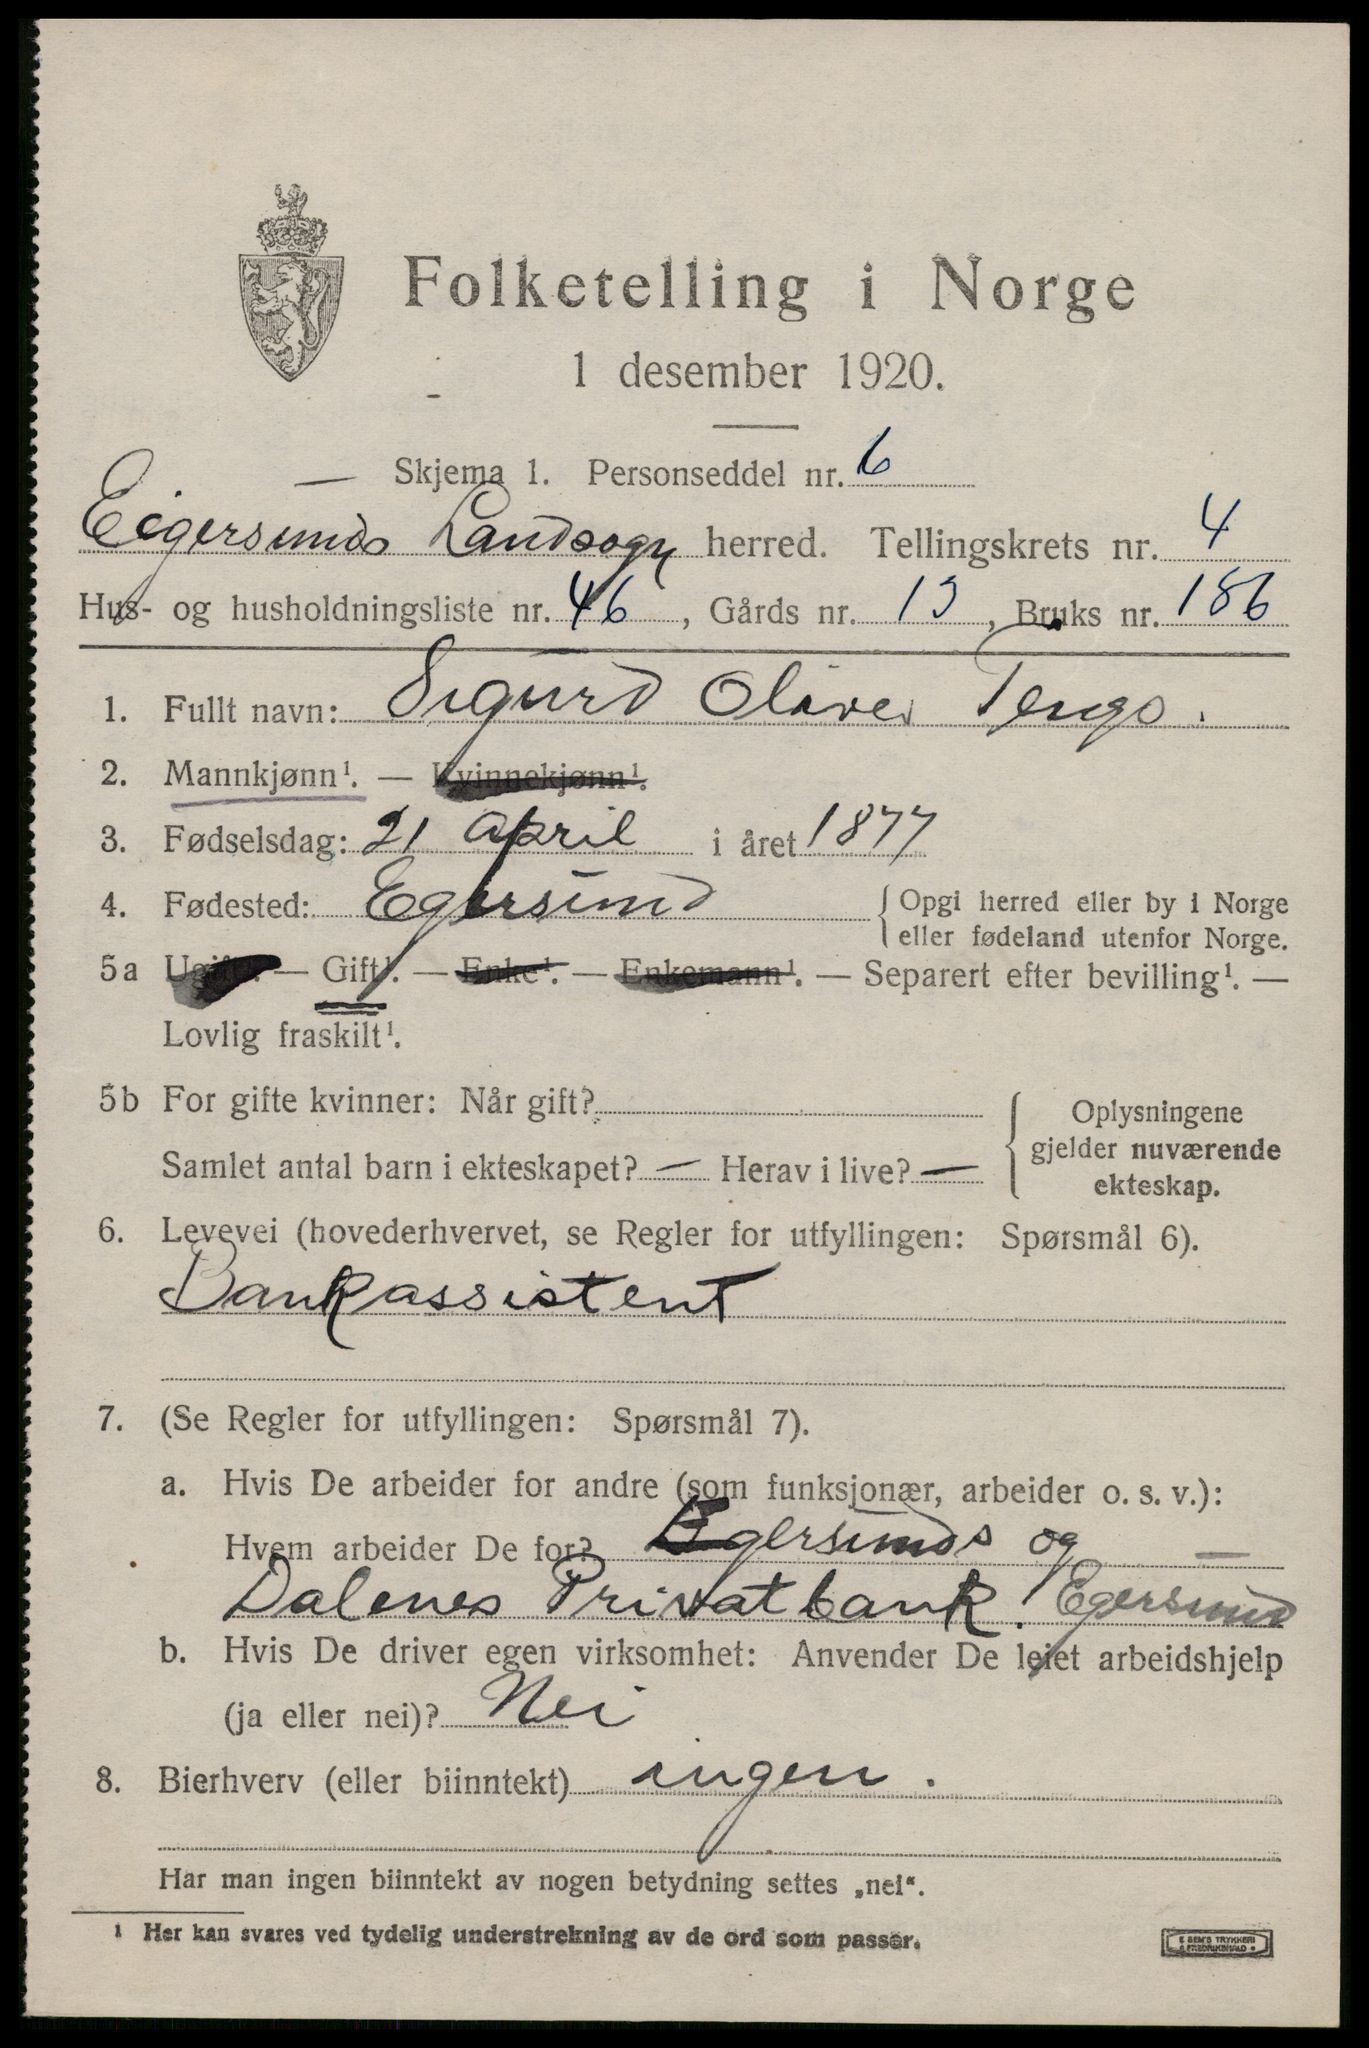 Folketelling i Norge
1 desember 1920.
Skjema 1. Personseddel nr. 6
Eigersunds Landsogn herred. Tellingskrets nr. 4
Hus- og husholdningsliste nr. 46, Gårds nr. 13, Bruks nr. 186
1. Fullt navn: Sigurd Oliver Tengs.
2. Mannkjønn¹. — Kvinnekjønn¹.
3. Fødselsdag: 21 april i året 1877
4. Fødested: Egersund { Opgi herred eller by i Norge
eller fødeland utenfor Norge.
5a Ugift¹. — Gift¹. — Enke¹. — Enkemann¹. — Separert efter bevilling¹. —
Lovlig fraskilt¹.
5b For gifte kvinner: Når gift? { Oplysningene
gjelder nuværende
Samlet antal barn i ekteskapet? — Herav i live? —
ekteskap.
6. Levevei (hovederhvervet, se Regler for utfyllingen: Spørsmål 6).
Bankassistent
7. (Se Regler for utfyllingen: Spørsmål 7).
a. Hvis De arbeider for andre (som funksjonær, arbeider o. s. v.):
Hvem arbeider De for? Egersunds og —
Dalenes Privatbank. Egersund
b. Hvis De driver egen virksomhet: Anvender De leiet arbeidshjelp
(ja eller nei)? Nei
8. Bierhverv (eller biinntekt) ingen.
Har man ingen biinntekt av nogen betydning settes „nei“.
¹ Her kan svares ved tydelig understrekning av de ord som passer.
E SEM'S TRYKKERI
FREDRIKSHALD